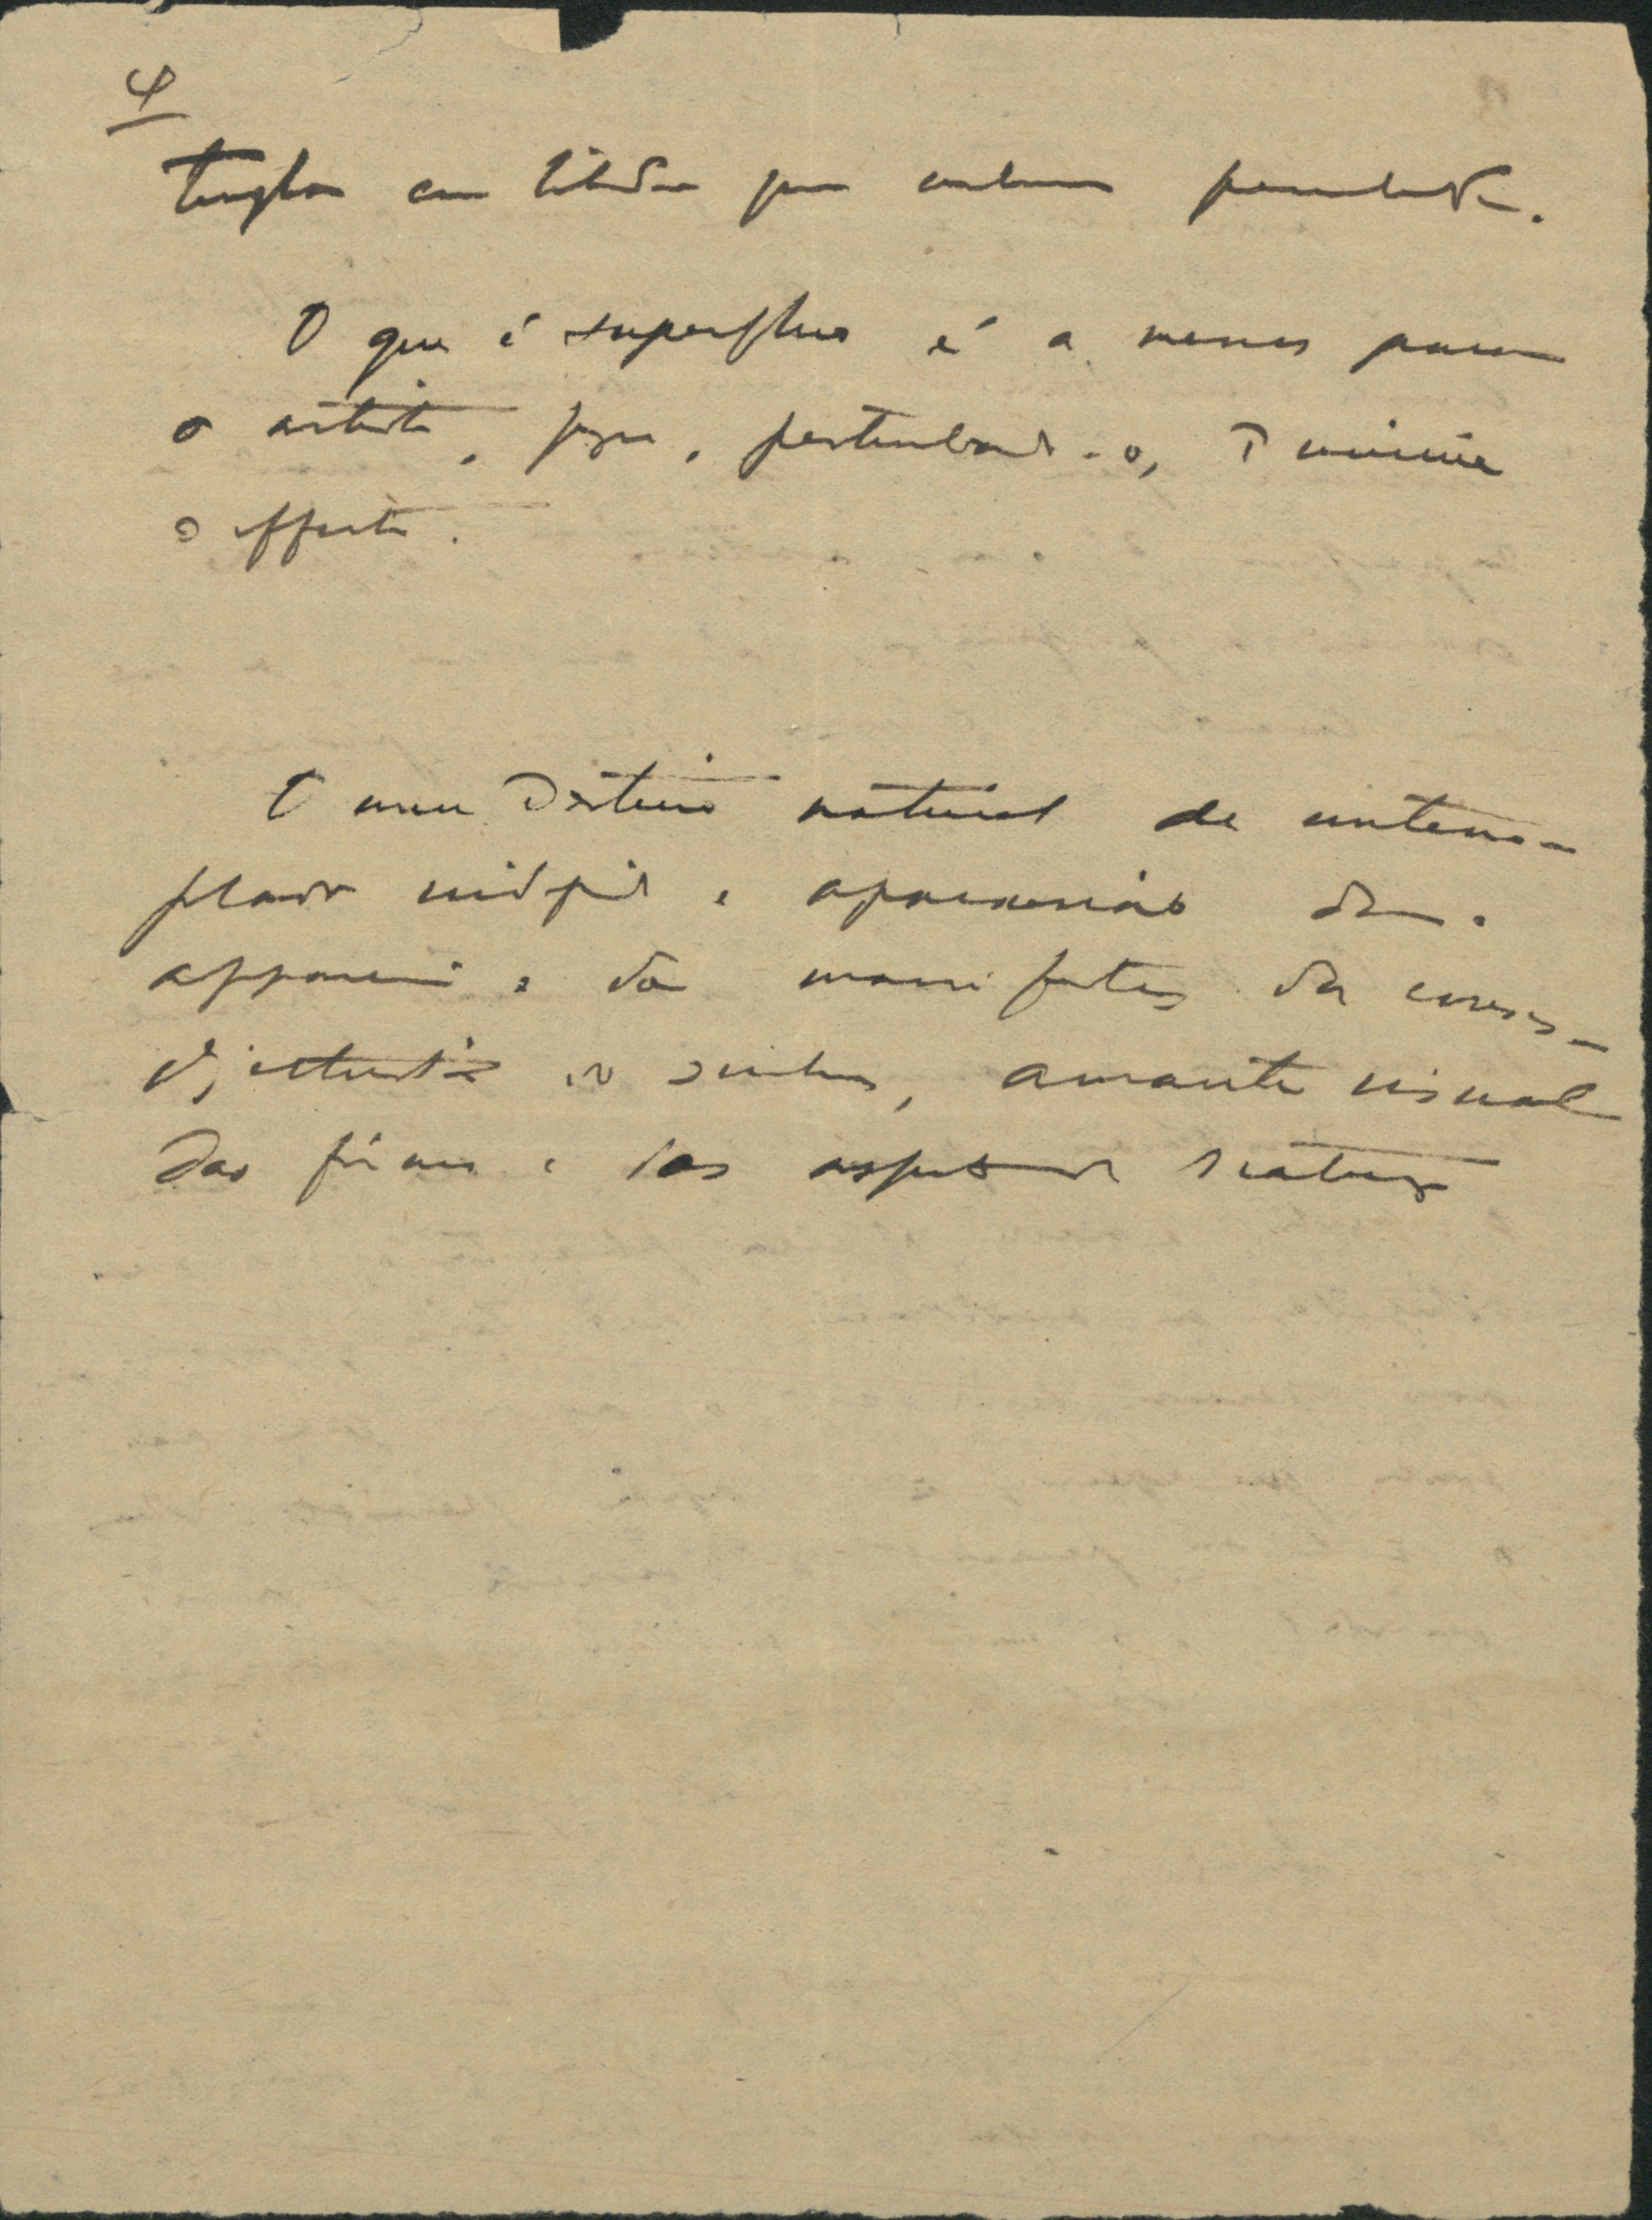 4
que
O que é superfluo é a menos para
o artista, porque, perturbando-o, diminue
o effeito.
O meu destino natural de contem-
plador indefinido e apaixonado das
apparencias e da manifestação das coisas —
objectivista dos sonhos, amante visual
das fórmas e dos aspectos da Natureza